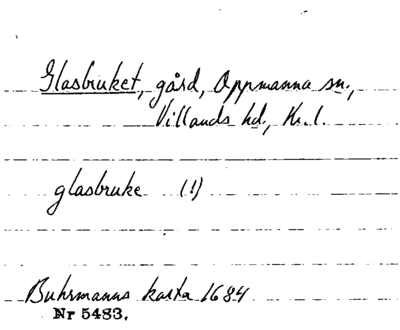 Glasbruket, gård, Oppmanna sn.,
Villands hd., Kr. l.
glasbruke (!)
Buhrmanns karta 1684
Nr 5483.